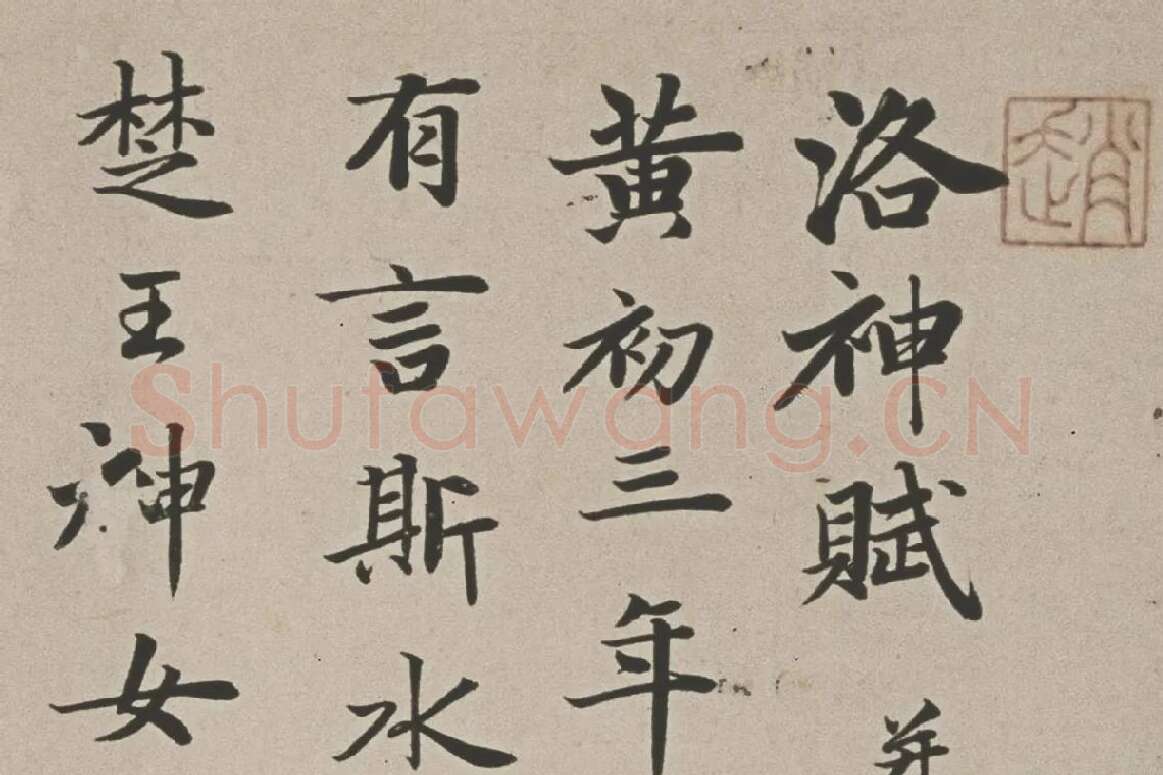 趙
洛神賦并
黃初三年
有言斯水
楚王神女
Shufawang.CN